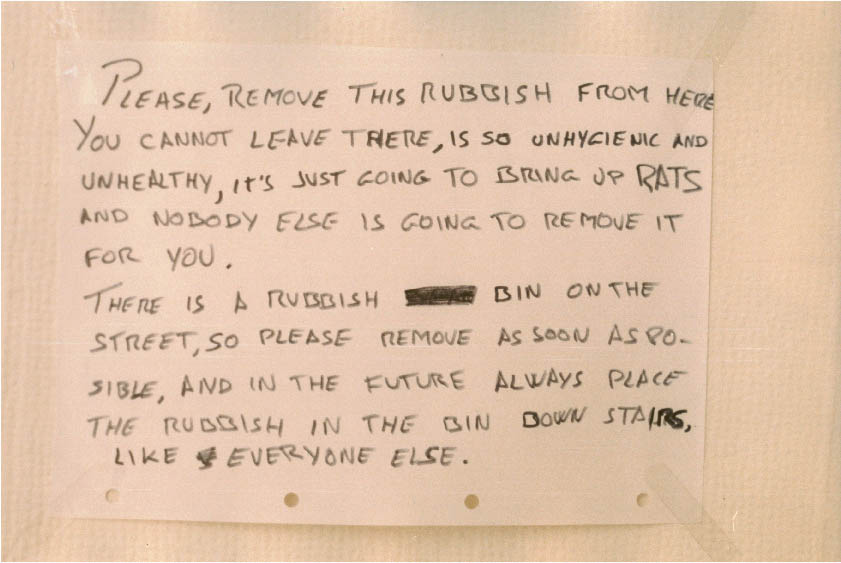 PLEASE, REMOVE THIS RUBBISH FROM HERE
YOU CANNOT LEAVE THERE, IS SO UNHYGIENIC AND
UNHEALTHY, IT'S JUST GOING TO BRING UP RATS
AND NOBODY ELSE IS GOING TO REMOVE IT
FOR YOU.
THERE IS A RUBBISH BIN ON THE
STREET, SO PLEASE REMOVE AS SOON AS PO-
SIBLE, AND IN THE FUTURE ALWAYS PLACE
THE RUBBISH IN THE BIN DOWN STAIRS,
LIKE EVERYONE ELSE.